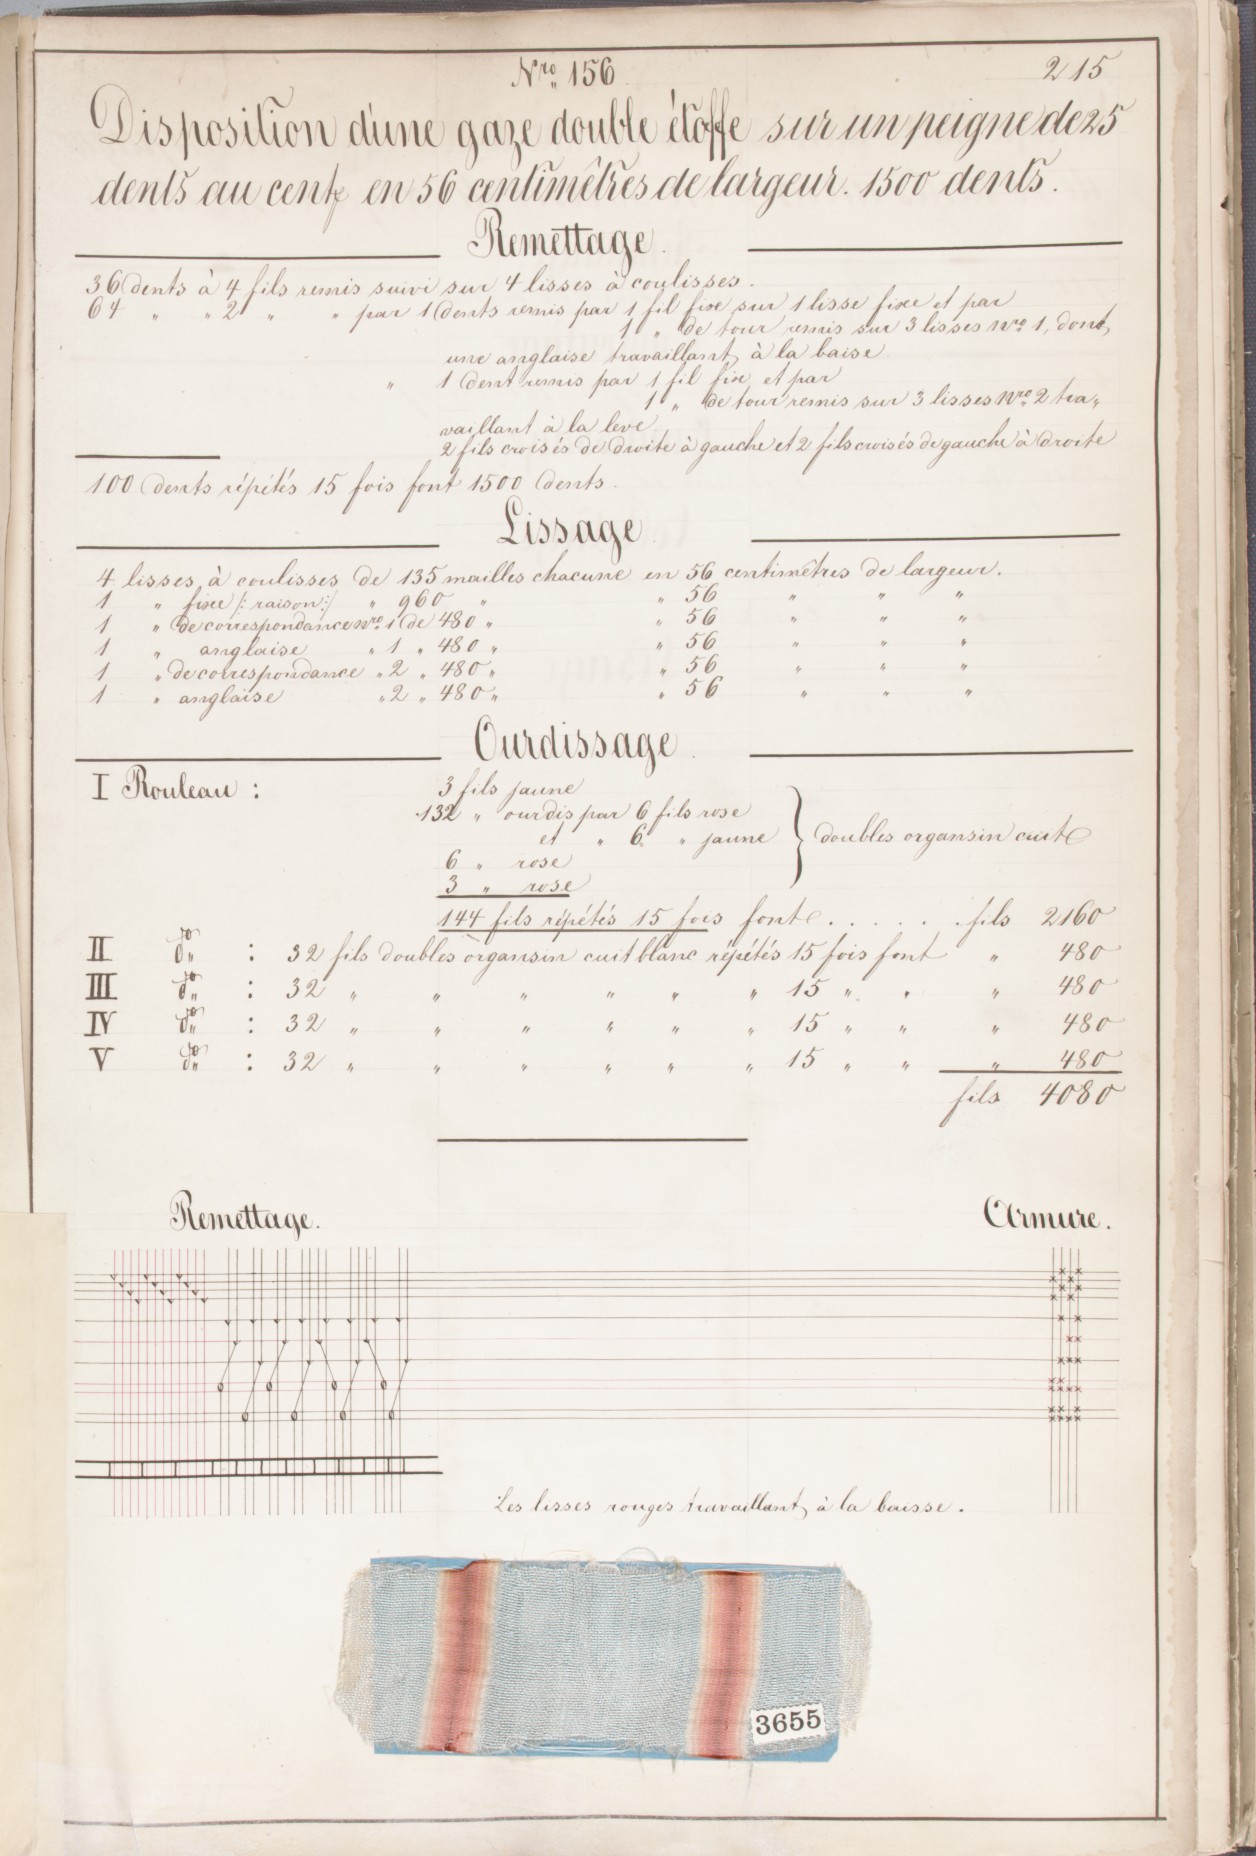 Nro. 156
215
Disposition d'une gaze double étoffe sur un peigne de 25
dents au cent. en 56 centimêtres de largeur. 1500 dents.
Remettage.
36 dents à 4 fils remis suivi sur 4 lisses à coulisses.
64 " " 2 " " par 1 dents remis par 1 fil fixe sur 1 lisse fixe et par
1 " de tour remis sur 3 lisses Nro. 1, dont
une anglaise travaillant à la baise
" 1 dent remis par 1 fil fixe et par
1 " de tour remis sur 3 lisses Nro. 2 tra"
vaillant à la leve
2 fils croisés de droite à gauche et 2 fils croisés de gauche à droite
100 dents répétés 15 fois font 1500 dents.
Lissage.
4 lisses à coulisses de 135 mailles chacune en 56 centimêtres de largeur.
1 " fixe /: raison :/ " 960 " " 56 " " "
1 " de correspondance Nro. 1 de 480 " " 56 " " "
1 " anglaise " 1 " 480 " " 56 " " "
1 " de correspondance " 2 " 480 " " 56 " " "
1 " anglaise " 2 " 480 " " 56 " " "
Ourdissage.
I Rouleau : 3 fils jaune
132 " ourdis par 6 fils rose
et " 6 " jaune } doubles organsin cuit
6 " rose
3 " rose
144 fils répétés 15 fois font . . . . . . fils 2160
II do. : 32 fils doubles organsin cuit blanc répétés 15 fois font " 480
III do. : 32 " " " " " " 15 " " " 480
IV do. : 32 " " " " " " 15 " " " 480
V do. : 32 " " " " " " 15 " " " 480
fils 4080
Remettage.
Armure.
Les lisses rouges travaillant à la baisse.
3655